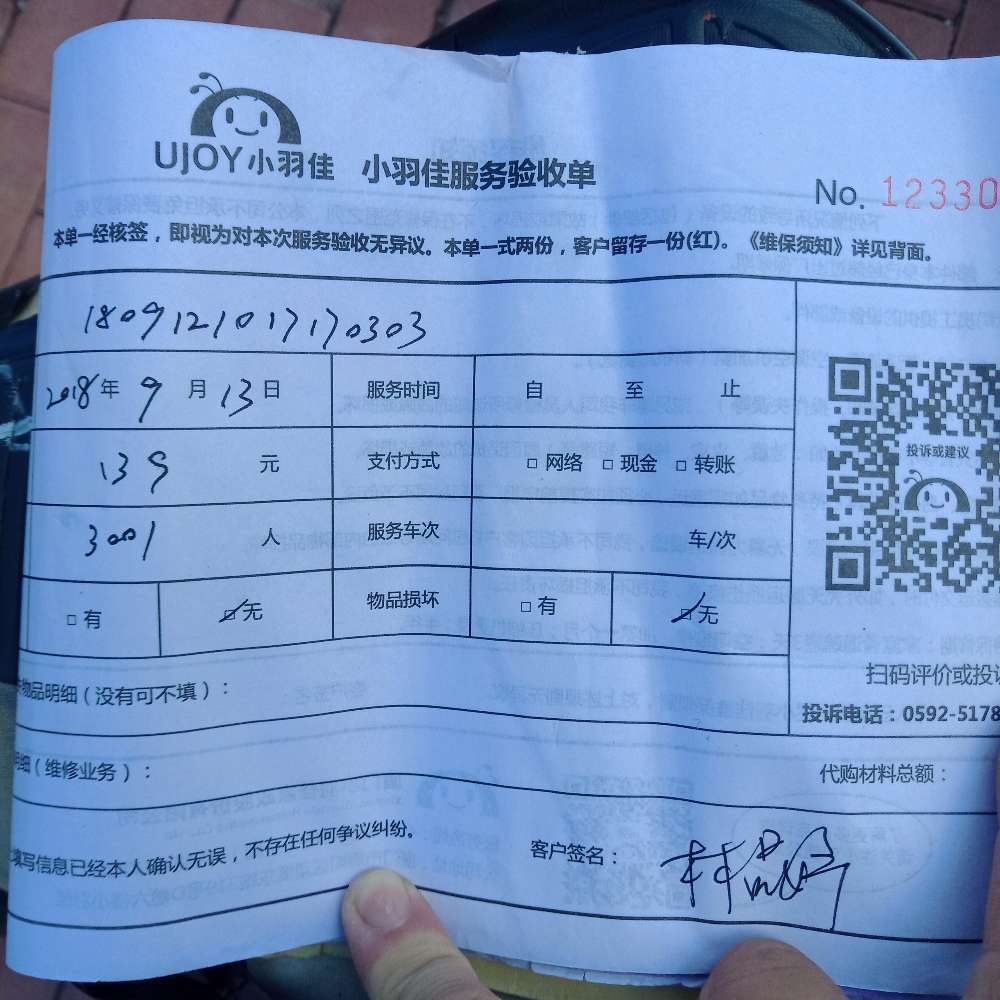 UJOY小羽佳 小羽佳服务验收单
No. 12330
本单一经核签，即视为对本次服务验收无异议。本单一式两份，客户留存一份(红)。《维保须知》详见背面。
1809121017170303
2018年 9 月 13 日 服务时间 自 至 止
139 元 支付方式 □ 网络 □ 现金 □ 转账
3001 人 服务车次 车/次
□ 有 □无 物品损坏 □ 有 □无
投诉或建议
扫码评价或投诉
物品明细（没有可不填）：
投诉电话：0592-5178
明细（维修业务）：
代购材料总额：
填写信息已经本人确认无误，不存在任何争议纠纷。
客户签名：